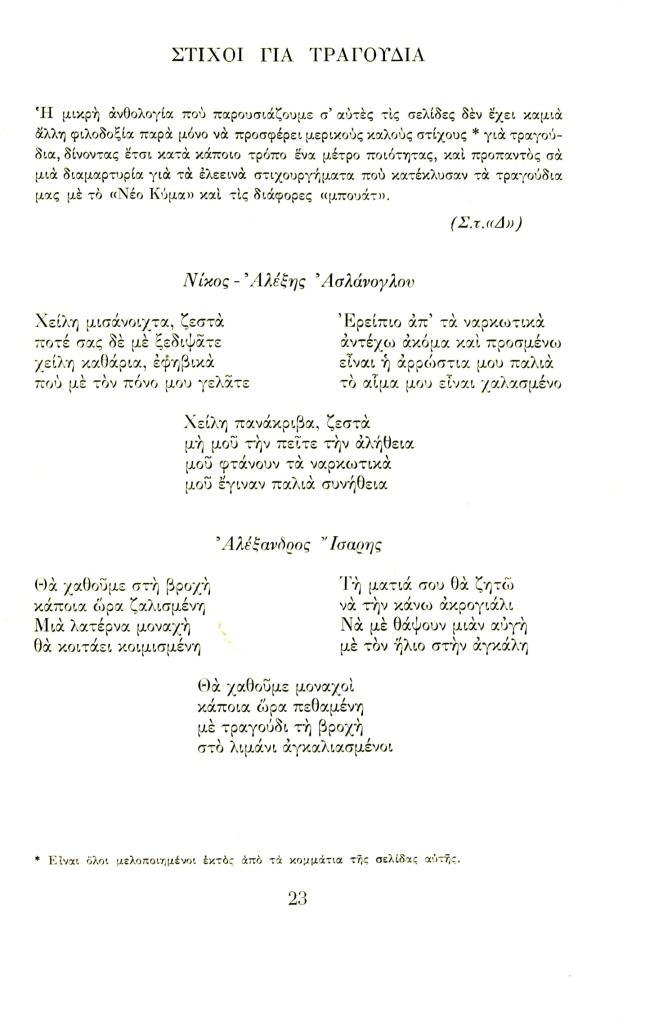 ΣΤΙΧΟΙ ΓΙΑ ΤΡΑΓΟΥΔΙΑ
Ἡ μικρὴ ἀνθολογία ποὺ παρουσιάζουμε σ' αὐτὲς τὶς σελίδες δὲν ἔχει καμιὰ
ἄλλη φιλοδοξία παρὰ μόνο νὰ προσφέρει μερικοὺς καλοὺς στίχους * γιὰ τραγού-
δια, δίνοντας ἔτσι κατὰ κάποιο τρόπο ἕνα μέτρο ποιότητας, καὶ προπαντὸς σὰ
μιὰ διαμαρτυρία γιὰ τὰ ἐλεεινὰ στιχουργήματα ποὺ κατέκλυσαν τὰ τραγούδια
μας μὲ τὸ «Νέο Κύμα» καὶ τὶς διάφορες «μπουάτ».
(Σ.τ.«Δ»)
Νίκος - Ἀλέξης Ἀσλάνογλου
Χείλη μισάνοιχτα, ζεστὰ
ποτέ σας δὲ μὲ ξεδιψᾶτε
χείλη καθάρια, ἐφηβικὰ
ποὺ μὲ τὸν πόνο μου γελᾶτε
Ἐρείπιο ἀπ' τὰ ναρκωτικὰ
ἀντέχω ἀκόμα καὶ προσμένω
εἶναι ἡ ἀρρώστια μου παλιὰ
τὸ αἷμα μου εἶναι χαλασμένο
Χείλη πανάκριβα, ζεστὰ
μὴ μοῦ τὴν πεῖτε τὴν ἀλήθεια
μοῦ φτάνουν τὰ ναρκωτικὰ
μοῦ ἔγιναν παλιὰ συνήθεια
Ἀλέξανδρος Ἴσαρης
Θὰ χαθοῦμε στὴ βροχὴ
κάποια ὥρα ζαλισμένη
Μιὰ λατέρνα μοναχὴ
θὰ κοιτάει κοιμισμένη
Τὴ ματιά σου θὰ ζητῶ
νὰ τὴν κάνω ἀκρογιάλι
Νὰ μὲ θάψουν μιὰν αὐγὴ
μὲ τὸν ἥλιο στὴν ἀγκάλη
Θὰ χαθοῦμε μοναχοὶ
κάποια ὥρα πεθαμένη
μὲ τραγούδι τὴ βροχὴ
στὸ λιμάνι ἀγκαλιασμένοι
* Εἶναι ὅλοι μελοποιημένοι ἐκτὸς ἀπὸ τὰ κομμάτια τῆς σελίδας αὐτῆς.
23